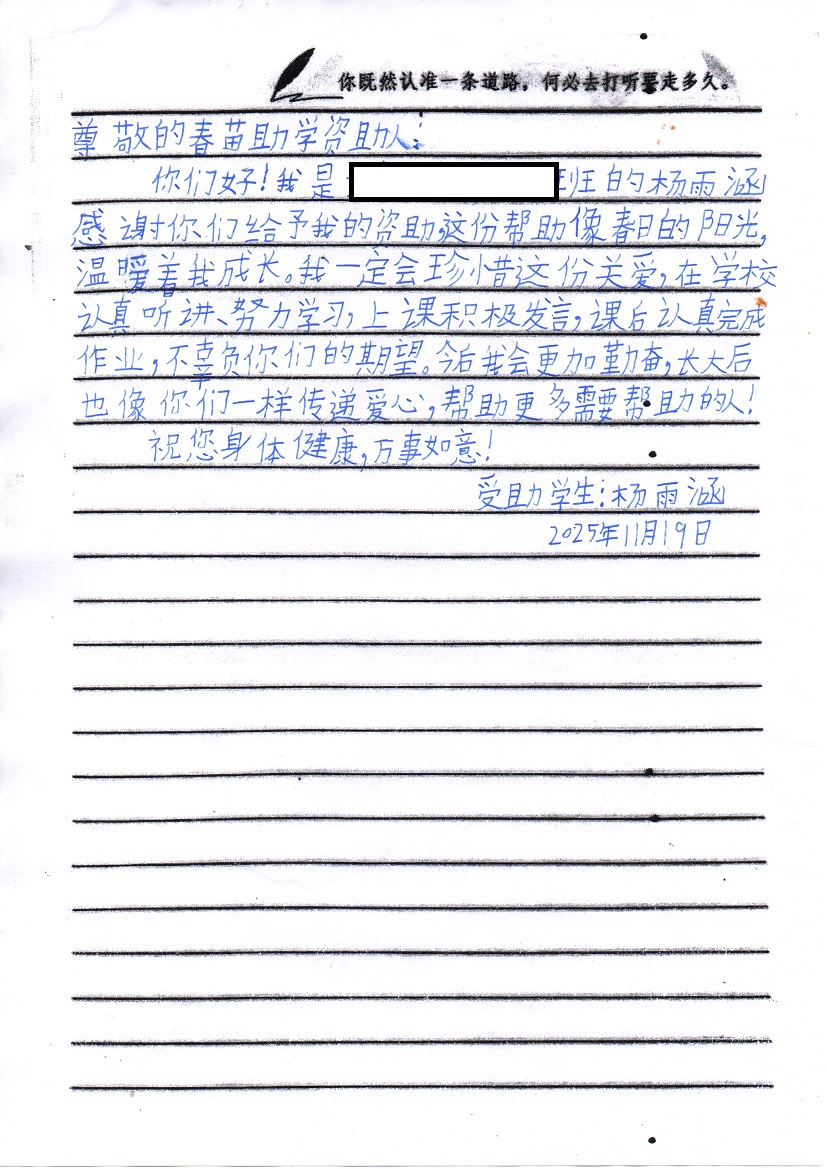 你既然认准一条道路，何必去打听要走多久。
尊敬的春苗助学资助人：
你们好！我是 班的杨雨涵
感谢你们给予我的资助，这份帮助像春日的阳光，
温暖着我成长。我一定会珍惜这份关爱，在学校
认真听讲、努力学习，上课积极发言，课后认真完成
作业，不辜负你们的期望。今后我会更加勤奋，长大后
也像你们一样传递爱心，帮助更多需要帮助的人！
祝您身体健康，万事如意！
受助学生：杨雨涵
2025年11月19日